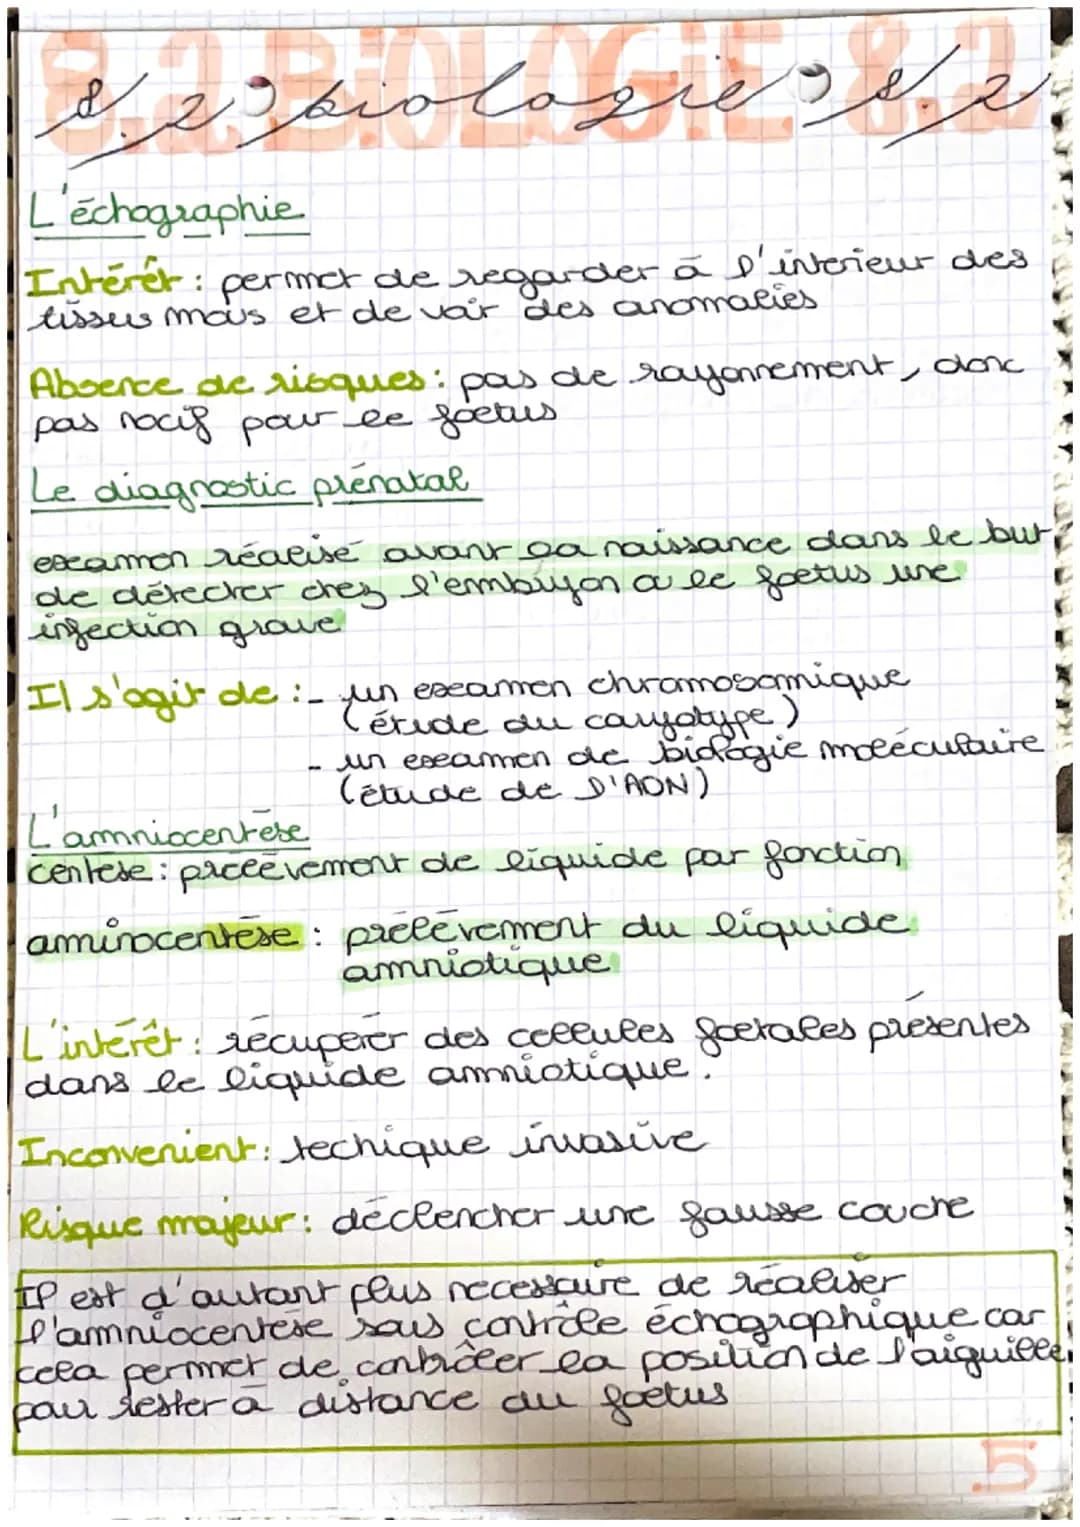 8.2 BiOLOGiE 8.2
8.2 biologie 8.2
L'échographie
Intérêt : permet de regarder à l'interieur des
tissus mous et de voir des anomalies
Absence de risques : pas de rayonnement, donc
pas nocif pour le foetus
Le diagnostic prénatal
examen réalisé avant la naissance dans le but
de détecter chez l'embryon ou le foetus une
infection grave
Il s'agit de : - un examen chromosomique
(étude du caryotype)
- un examen de biologie moléculaire
(étude de l'ADN)
L'amniocentèse
centèse : prélèvement de liquide par fonction
aminocentèse : prélèvement du liquide
amniotique
L'intérêt : récuperer des cellules foetales présentes
dans le liquide amniotique.
Inconvenient : techique invasive
Risque majeur : déclencher une fausse couche
Il est d'autant plus necessaire de réaliser
l'amniocentèse sous contrôle échographique car
cela permet de contrôler la position de l'aiguille,
pour rester à distance du foetus
.5